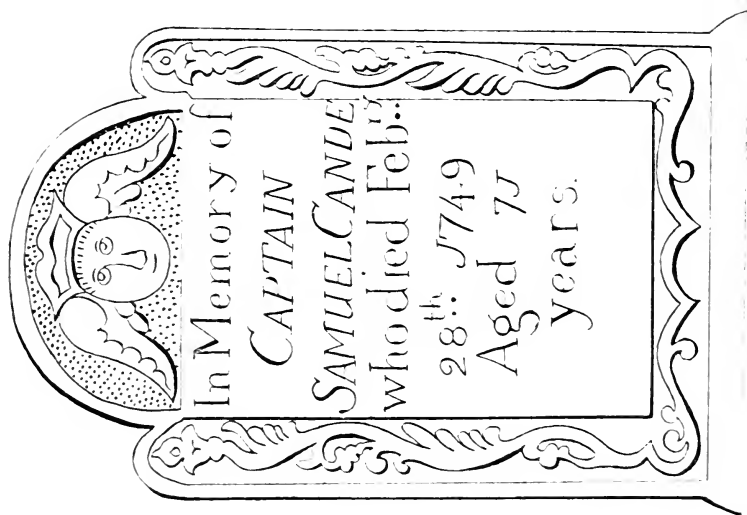 In Memory of
CAPTAIN
SAMUEL CANDE
who died Feb:ry
28th: J749
Aged 7J
years.